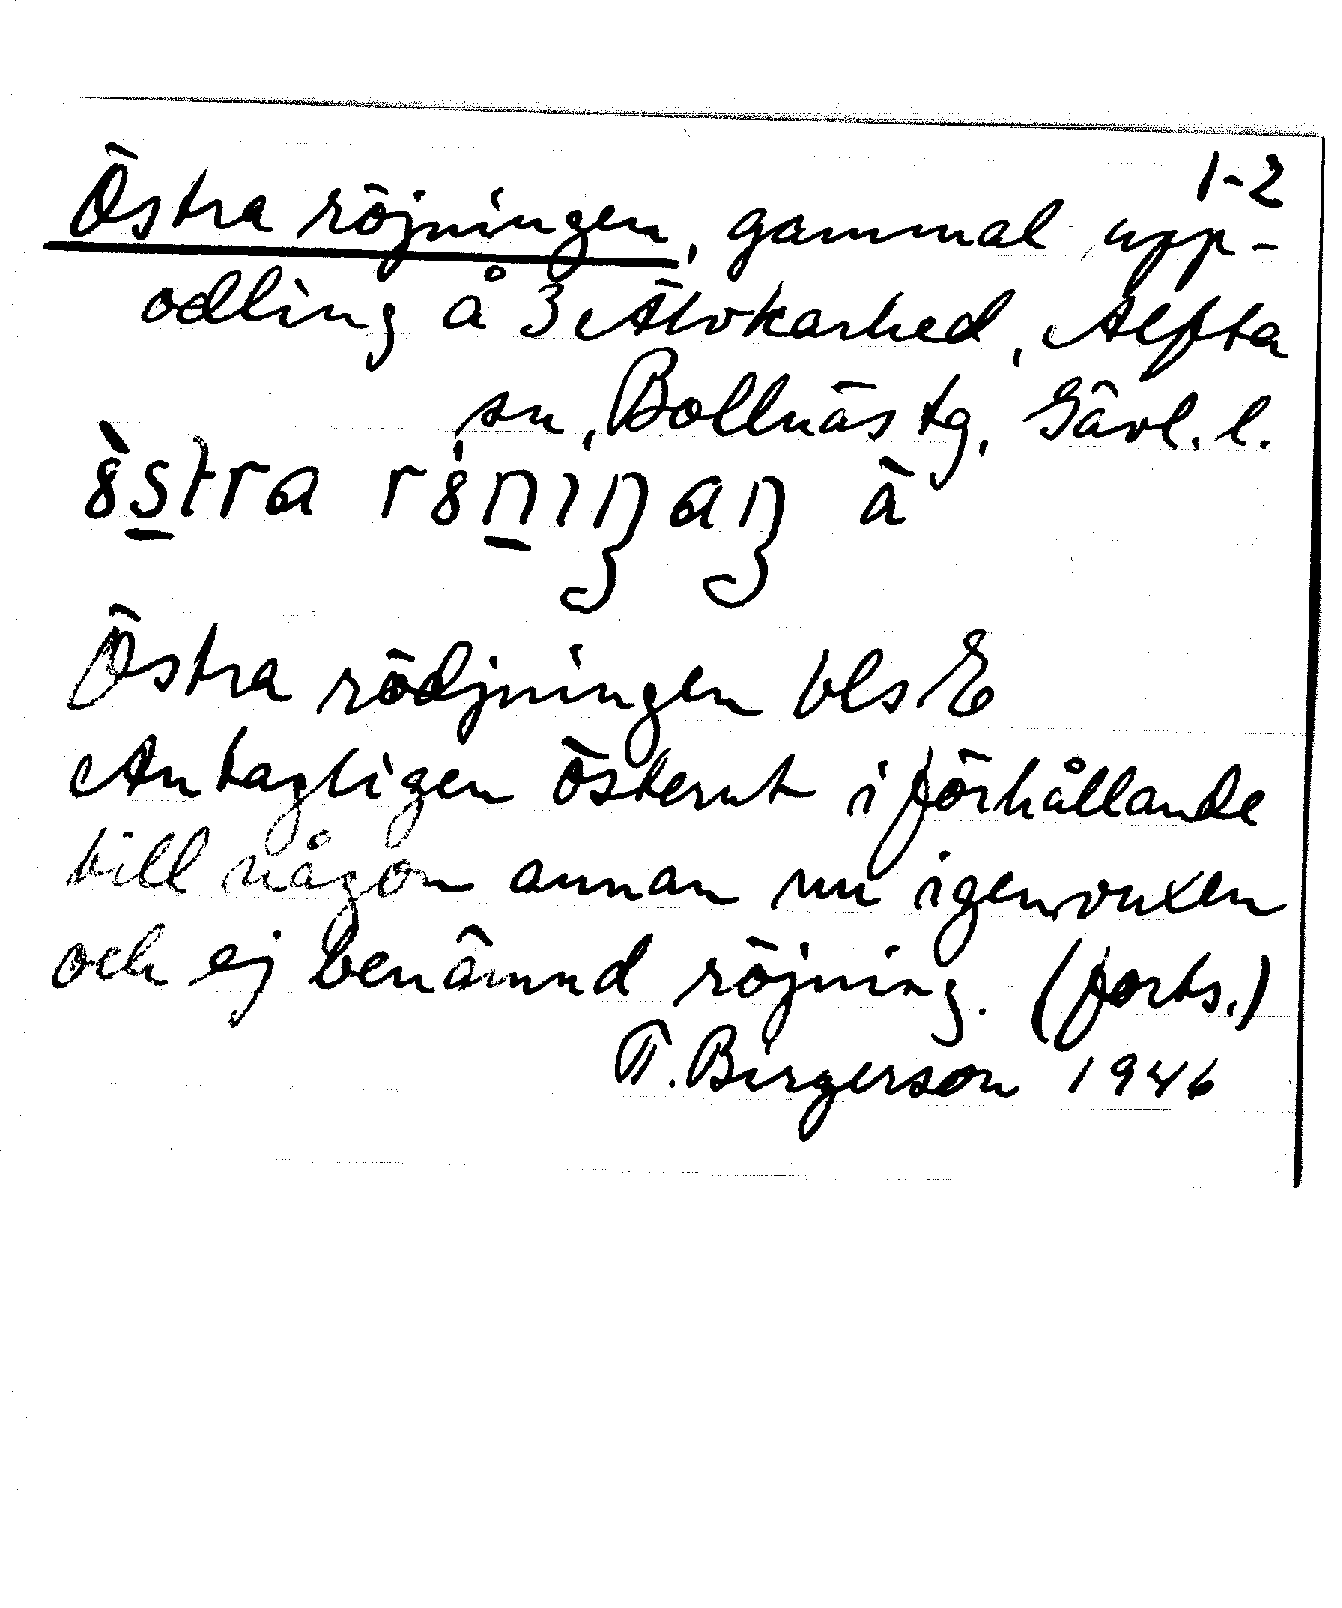 1-2
Östra röjningen, gammal upp-
odling å 3 Älvkarhed, Alfta
sn, Bollnäs tg, Gävl. l.
Östra rödjningen bls E
Antagligen österut i förhållande
till någon annan nu igenvuxen
och ej benämnd röjning. (forts.)
T. Birgerson 1946